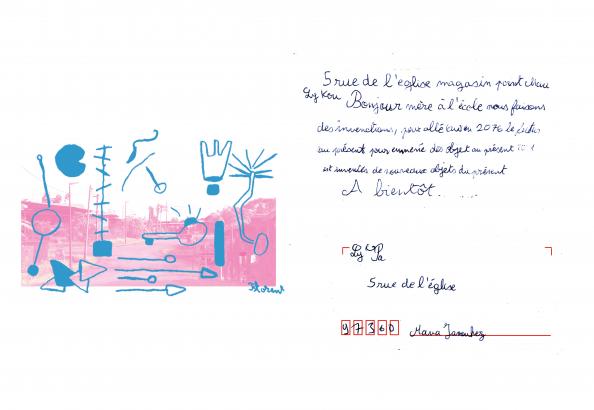 Florent
5 rue de l'église magasin point
Ly Kou Bonjour mère à l'école nous faisons
des inventions, pour allé en 2070
au présent pour emmené des objet au présent
et inventés de nouveaux objets du présent
A bientôt.....
Ly
5 rue de l'église
97360 Mana Javouhey